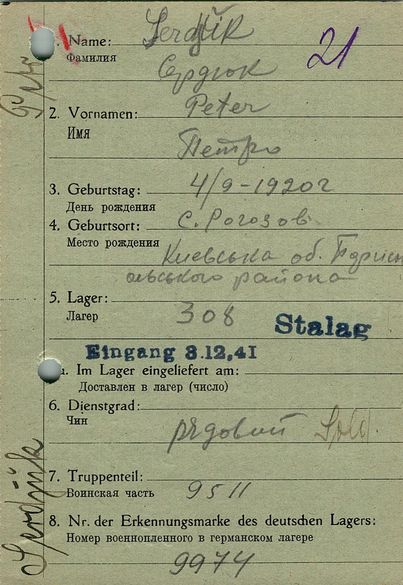 1. Name: Serdjük
Фамилия
Сердюк
21
2. Vornamen: Peter
Имя
Петро
3. Geburtstag: 4/9-1920г
День рождения
4. Geburtsort: с. Рогозов
Место рождения
Киевська об. Бориспольського района
5. Lager: 308
Лагер
Stalag
Eingang 3.12.41
a. Im Lager eingeliefert am:
Доставлен в лагер (число)
6. Dienstgrad:
Чин
рядовий Sold.
7. Truppenteil:
Воинская часть 9511
8. Nr. der Erkennungsmarke des deutschen Lagers:
Номер военнопленного в германском лагере
9974
Serdjük